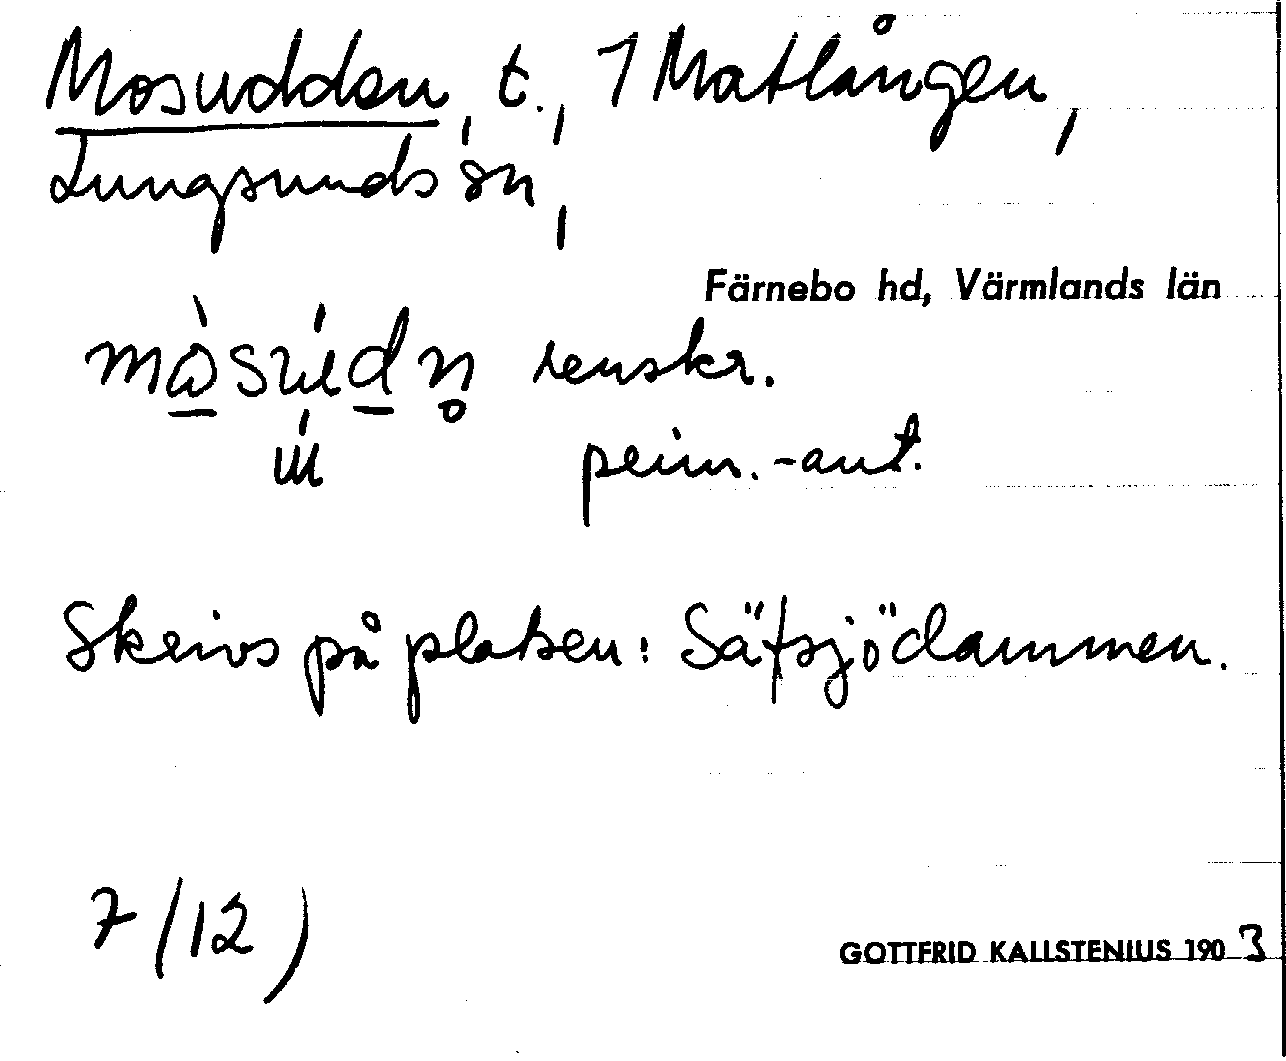 Mosudden, t., 1 Matlången,
Lungsunds sn,
Färnebo hd, Värmlands län
renskr.
prim.-ant.
Skrivs på platsen: Sätsjödammen.
7 (12)
GOTTFRID KALLSTENIUS 1903